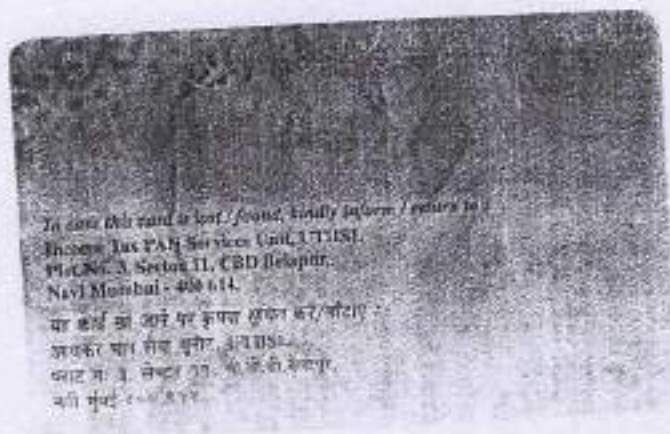 In case this card is lost / found, kindly inform / return to :
Income Tax PAN Services Unit, UTIISL
Plot No. 3, Sector 11, CBD Belapur,
Navi Mumbai - 400 614.
यह कार्ड खो जाने पर कृपया सूचित करें/लौटाए :
आयकर पैन सेवा यूनीट, UTIISL
प्लाट नं: ३, सेक्टर ११, सी.बी.डी.बेलापूर,
नवी मुंबई